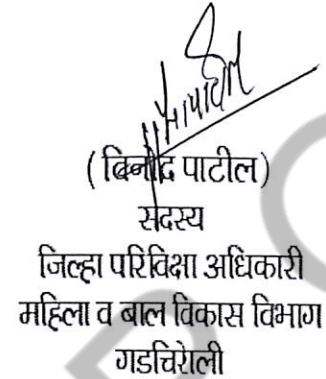 ( बिनोद पाटील )
सदस्य
जिल्हा परिविक्षा अधिकारी
महिला व बाल विकास विभाग
गडचिरोली